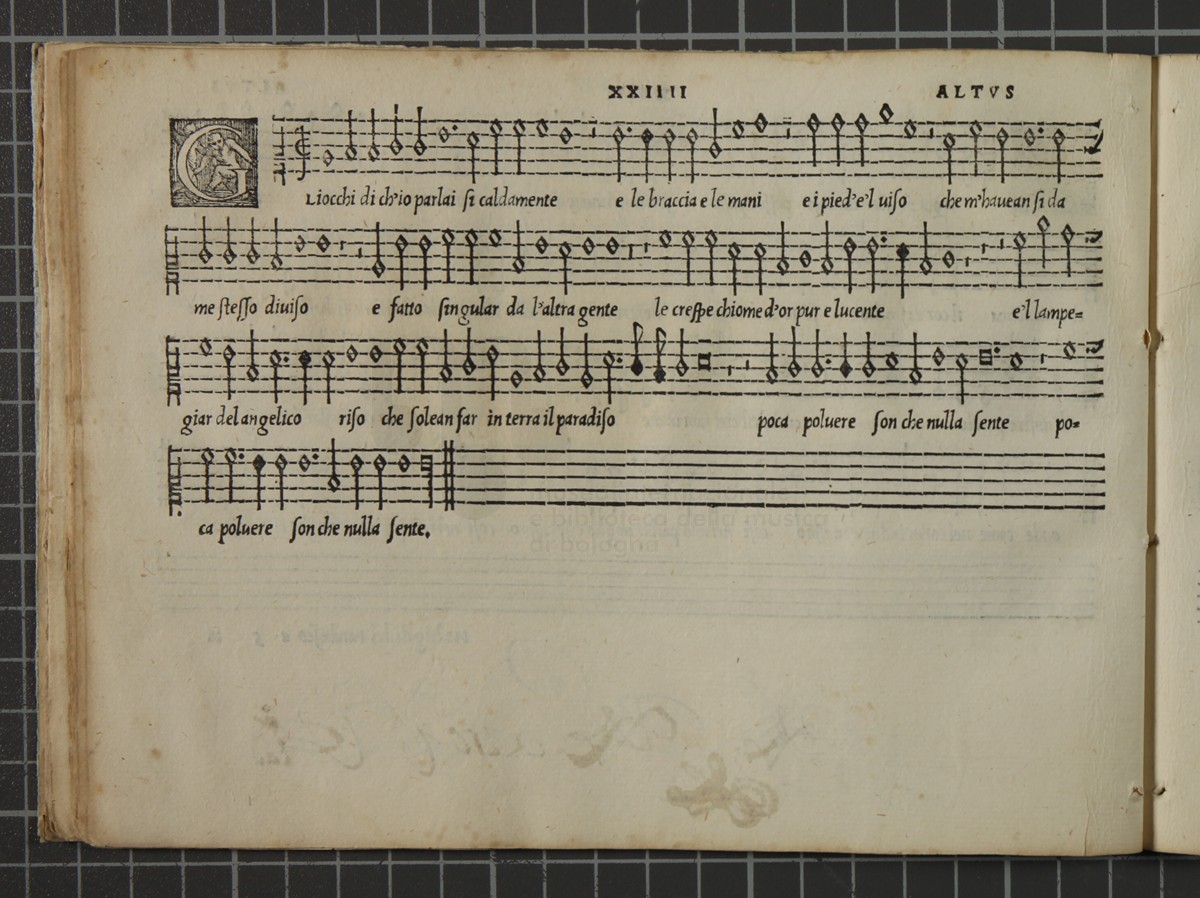 XXIIII ALTVS
GLiocchi di ch'io parlai ſi caldamente e le braccia e le mani e i pied'e'l uiſo che m'hauean ſi da
me ſteſſo diuiſo e fatto ſingular da l'altra gente le creſpe chiome d'or pur e lucente e'l lampe=
giar del angelico riſo che ſolean far in terra il paradiſo poca poluere ſon che nulla ſente po=
ca poluere ſon che nulla ſente.
e biblioteca della musica
di bologna